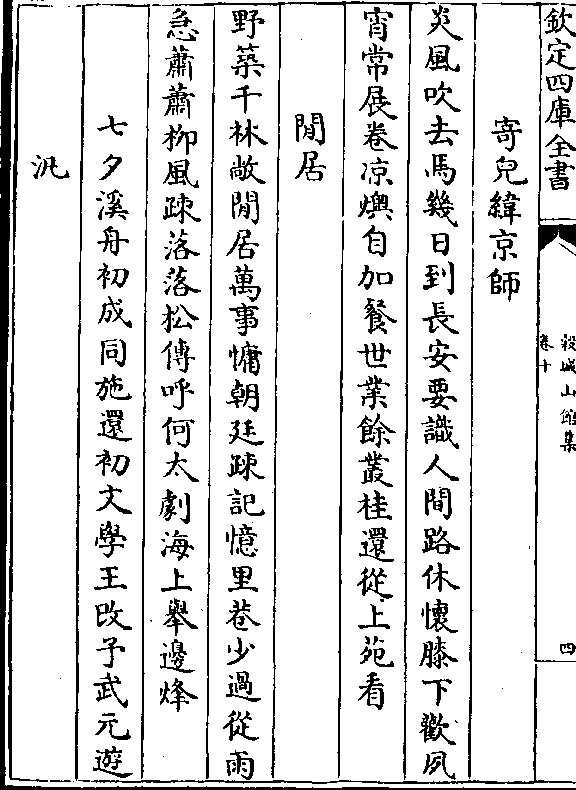 欽定四庫全書
穀城山館集
卷十
四
寄兒緯京師
炎風吹去馬幾日到長安要識人間路休懷膝下歡夙
宵常展卷凉燠自加餐世業餘叢桂還從上苑看
閒居
野築千林敞閒居萬事慵朝廷疎記憶里巷少過從雨
急蕭蕭柳風疎落落松傳呼何太劇海上舉邊烽
七夕溪舟初成同施還初文學王改予武元遊
汎